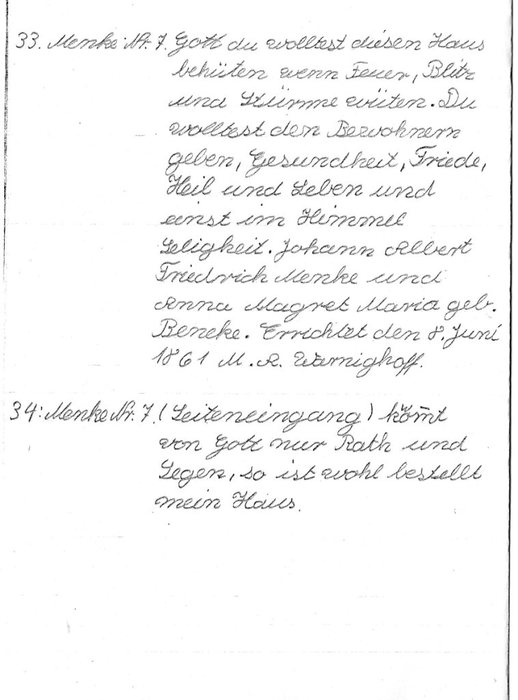 33. Menke Nr. 7. Gott du wolltest diesen Haus
behüten wenn Feuer, Blitz
und Stürme wüten. Du
wolltest den Bewohnern
geben, Gesundheit, Friede,
Heil und Leben und
einst im Himmel
Seligkeit. Johann Albert
Friedrich Menke und
Anna Magret Maria geb.
Beneke. Errichtet den 8. Juni
1861 M. R. Warnighoff.
34: Menke Nr. 7. (Seiteneingang) kom̄t
von Gott nur Rath und
Segen, so ist wohl bestellt
mein Haus.